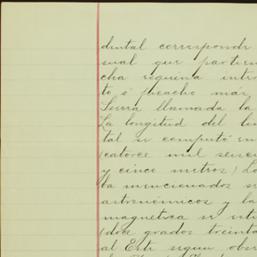 dental correspondi
sual que partiendo
cha segunda intro
to ó picacho más
Sierra llamada la
La longitud del lin
tal se computó en
(catorce mil seisci
y cinco metros) La
la mencionados se
astronómicos y la
magnetica se uti
(doce grados treinta
al Este segun obser